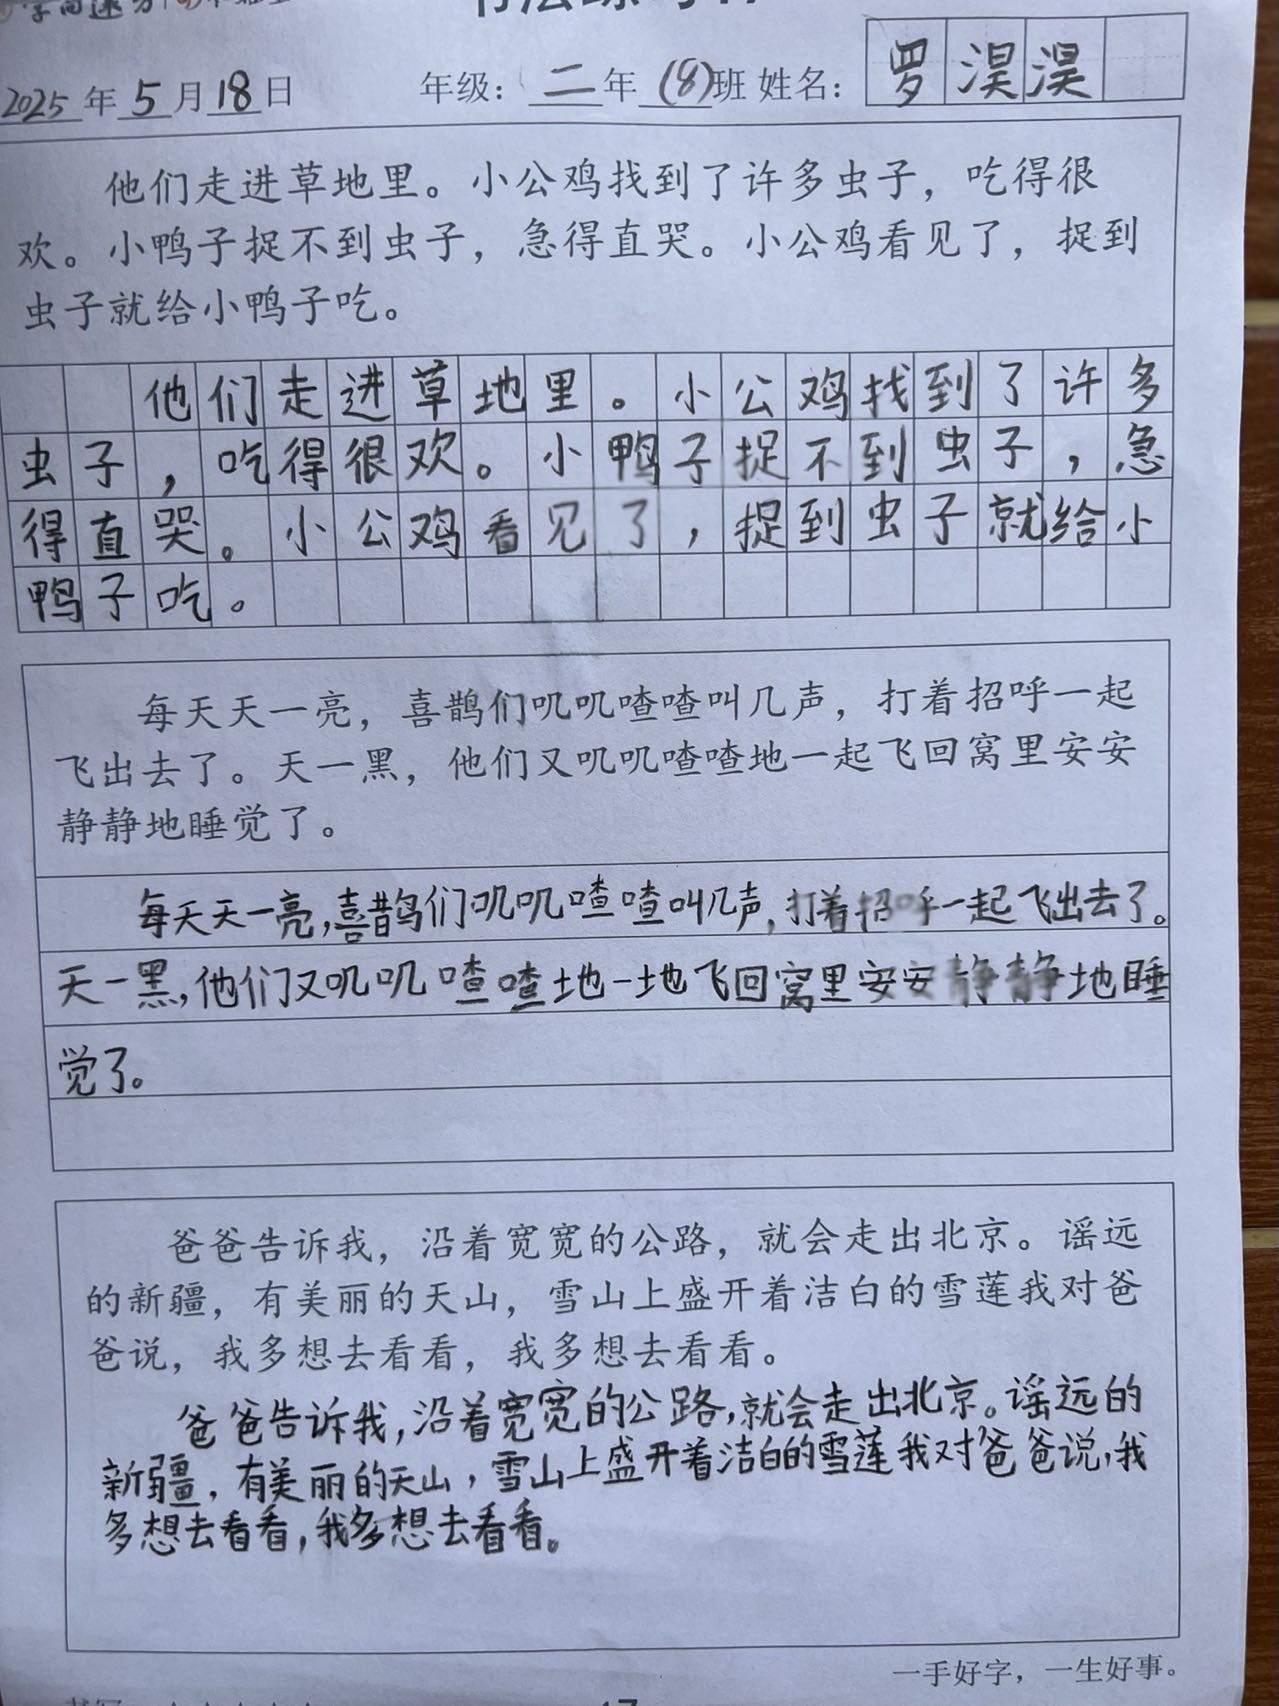 2025年5月18日 年级：二年(8)班 姓名：罗淏淏
他们走进草地里。小公鸡找到了许多虫子，吃得很
欢。小鸭子捉不到虫子，急得直哭。小公鸡看见了，捉到
虫子就给小鸭子吃。
他们走进草地里。小公鸡找到了许多
虫子，吃得很欢。小鸭子捉不到虫子，急
得直哭。小公鸡看见了，捉到虫子就给小
鸭子吃。
每天天一亮，喜鹊们叽叽喳喳叫几声，打着招呼一起
飞出去了。天一黑，他们又叽叽喳喳地一起飞回窝里安安
静静地睡觉了。
每天天一亮，喜鹊们叽叽喳喳叫几声，打着招呼一起飞出去了。
天一黑，他们又叽叽喳喳地一地飞回窝里安安静静地睡
觉了。
爸爸告诉我，沿着宽宽的公路，就会走出北京。谣远
的新疆，有美丽的天山，雪山上盛开着洁白的雪莲我对爸
爸说，我多想去看看，我多想去看看。
爸爸告诉我，沿着宽宽的公路，就会走出北京。谣远的
新疆，有美丽的天山，雪山上盛开着洁白的雪莲我对爸爸说，我
多想去看看，我多想去看看。
一手好字，一生好事。